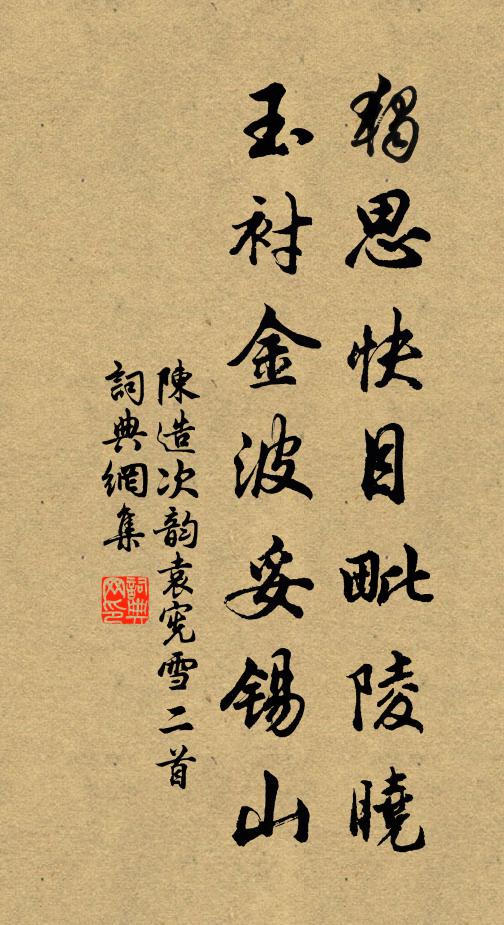 獨思快目毗陵曉
玉衬金波妥锡山
陳造次韵袁宪雪二首
詞典網集
詞典网印